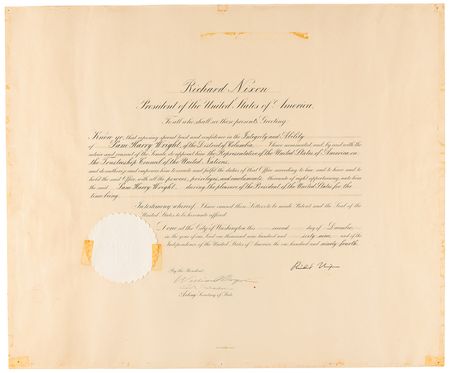 Richard Nixon
President of the United States of America.
To all who shall see these presents, Greeting:
Know ye, that reposing special trust and confidence in the Integrity and Ability
of Sam Harry Wright, of the District of Columbia, I have nominated and, by and with the
advice and consent of the Senate, do appoint him the Representative of the United States of America on
the Trusteeship Council of the United Nations,
and do authorize and empower him to execute and fulfil the duties of that Office according to law, and to have and to
hold the said Office, with all the powers, privileges, and emoluments thereunto of right appertaining unto him
the said Sam Harry Wright, during the pleasure of the President of the United States for the
time being.
In testimony whereof, I have caused these Letters to be made Patent and the Seal of the
United States to be hereunto affixed.
Done at the City of Washington this second day of December,
in the year of our Lord one thousand nine hundred and sixty-nine and of the
Independence of the United States of America the one hundred and ninety-fourth.
By the President:
Richard Nixon
Acting Secretary of State.